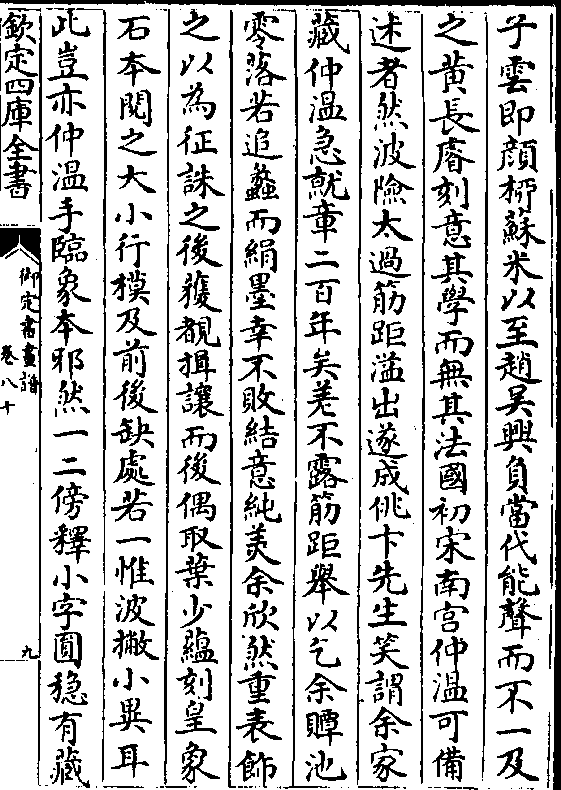 子雲即顔栁蘇米以至趙吳興負當代能聲而不一及
之黄長睿刻意其學而無其法國初宋南宫仲温可備
述者然波險太過筋距溢出遂成佻卞先生笑謂余家
藏仲温急就章二百年矣差不露筋距舉以乞余贉池
零落若追蠡而絹墨幸不敗結意純美余欣然重表飾
之以為征誅之後獲覩揖讓而後偶取葉少藴刻皇象
石本閲之大小行模及前後缺處若一惟波撇小異耳
此豈亦仲温手臨象本邪然一二傍釋小字圓穏有藏
欽定四庫全書
御定書畫譜
卷八十
九